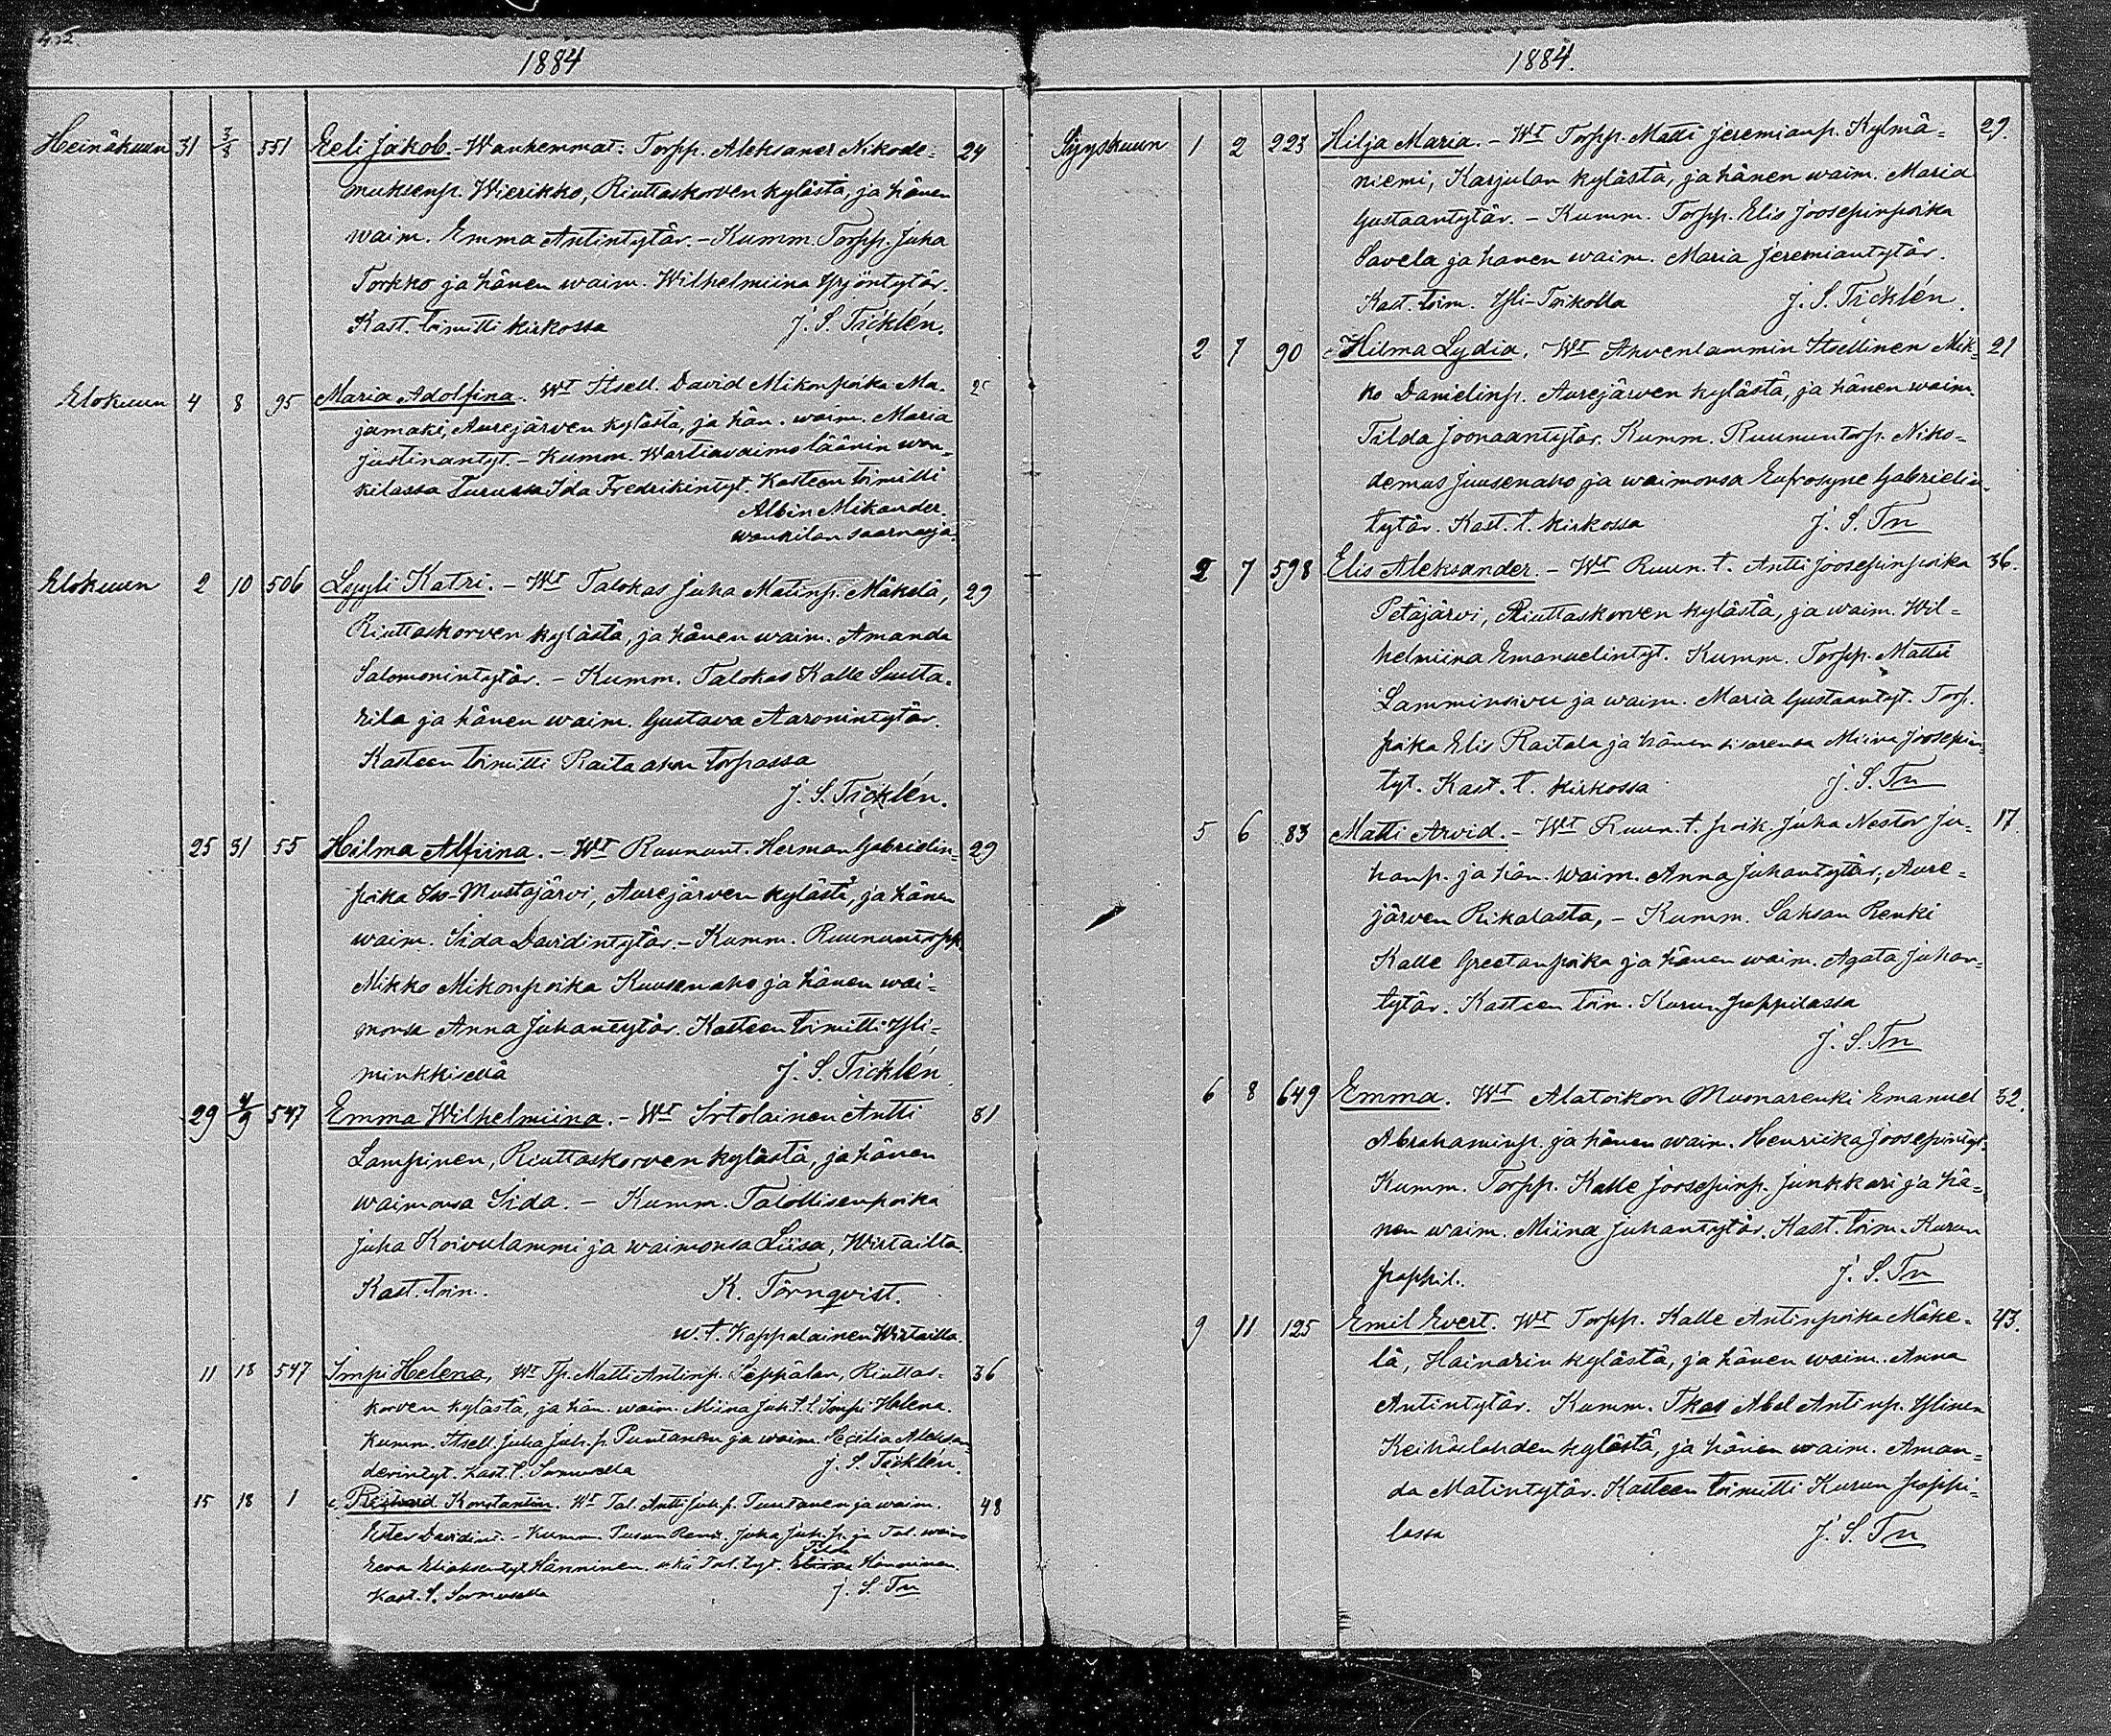 1884
Heinäkuun 31 3/8 551 Eeli Jakob. - Wanhemmat: Torpp. Aleksaner Nikode= 24
muksenp. Wierikko, Riuttaskorven kylästä, ja hänen
waim. Emma Antintytär. - Kumm. Torpp. Juha
Torkko ja hänen waim. Wilhelmiina Yrjöntytär.
Kast. toimitti kirkossa J. S. Ticklén.
Elokuun 4 8 95 Maria Adolfina. Wt Itsell. David Mikonpoika Ma-
jamaki, Aurejärven kylästä, ja hän. waim. Maria
Justinantyt. - Kumm. Wartiavaimo läänin wan=
kilassa Turussa Ida Fredrikintyt. Kasteen toimitti
Albin Mikander.
wankilan saarnaaja.
Elokuun 2 10 506 Lyyli Katri. - Wt Talokas Juha Matinp. Mäkelä, 29
Riuttaskorven kylästä, ja hänen waim. Amanda
Salomonintytär. - Kumm. Talokas Kalle Suuta-
rila ja hänen waim. Gustava Aaronintytär.
Kasteen toimitti Raitaahon torpassa
J. S. Ticklén.
25 31 55 Hilma Alfiina. - Wt Ruununt. Herman Gabrielin= 29
poika Iso-Mustajärvi, Aurejärven kylästä, ja hänen
waim. Iida Davidintytär. - Kumm. Ruununtorpp.
Mikko Mikonpoika Kuusenaho ja hänen wai=
monsa Anna Juhantytär. Kasteen toimitti Yli=
minkkisellä J. S. Ticklén
29 4/9 547 Emma Wilhelmiina. - Wt Irtolainen Antti 81
Lampinen, Riuttaskorven kylästä, ja hänen
waimonsa Iida. - Kumm. Talollisenpoika
Juha Koivulammi ja waimonsa Liisa, Wirtailta.
Kast. toim. K. Törnqvist.
w. t. Kappalainen Wirtailla.
11 18 547 Impi Helena, Wt Tp. Matti Antinp. Seppälän, Riuttas-
36
korven kylästä, ja hän. waim. Miina Juh. t. l. Impi Helena.
Kumm. Itsell. Juha Juh. p. Puntanen ja waim. Cecilia Aleksan-
derintyt. Kast. t. J. S. Ticklén.
15 18 1 Rishard Konstantin. Wt Tal. Antti Juh. p. Tuutanen ja waim. 48
Ester Davidint. - Kumm. Juha Juh. p. ja Tal. waimo
Eeva Hänninen. Tal. tyt. Tilda Hänninen.
Kast. t. J. S. Tn
1884.
Syyskuun 1 2 223 Hilja Maria. - Wt Torpp. Matti Jeremianp. Kylmä= 29.
niemi, Karjulan kylästä, ja hänen waim. Maria
Gustaantytär. - Kumm. Torpp. Elis Joosepinpoika
Savela ja hanen waim. Maria Jeremiantytär.
Kast. toim. Yli-Toikolla J. S. Ticklén.
2 7 90 Hilma Lydia, Wt Ahvenlammin Itsellinen Mik- 21
ko Danielinp. Aurejärven kylästä, ja hänen waim.
Tilda Joonaantytär. Kumm. Ruununtorp. Niko-
demus Juusenaho ja waimonsa Eufrosyne Gabrielin-
tytär. Kast. t. kirkossa J. S. Tn
2 7 598 Elis Aleksander. - Wt Ruun. t. Antti Joosepinpoika 36.
Petäjärvi, Riuttaskorven kylästä, ja waim. Wil=
helmiina Emanuelintyt. Kumm. Torpp. Matti
Lamminsivu ja waim. Maria Gustaantyt. Torp.
poika Elis Raitala ja hänen sisarensa Miina Joosepin-
tyt. Kast. t. kirkossa J. S. Tn
5 6 83 Matti Arvid. - Wt Ruun. t. poik Juha Nestor Ju= 17.
hanp. ja hän. waim. Anna Juhantytär, Aure=
järven Rikalasta, - Kumm. Sahsan Renki
Kalle Greetanpoika ja hänen waim. Agata Juhan-
tytär. Kasteen toim. Kurun pappilassa
J. S. Tn
6 8 649 Emma. Wt Alatoikon Muonarenki Emanuel 32.
Abrahaminp. ja hänen waim. Henriika Joosepintyt.
Kumm. Torpp. Kalle Joosepinp. Junkkari ja hä=
nen waim. Miina Juhantytär. Kast. toim. Kurun
pappil. J. S. Tn
9 11 125 Emil Evert. Wt Torpp. Kalle Antinpoika Mäke- 43.
lä, Hainarin kylästä, ja hänen waim. Anna
Antintytär. Kumm. Tkas Abel Antinp. Ylinen
Keihäslahden kylästä, ja hänen waim. Aman-
da Matintytär. Kasteen toimitti Kurun pappi=
lassa J. S. Tn